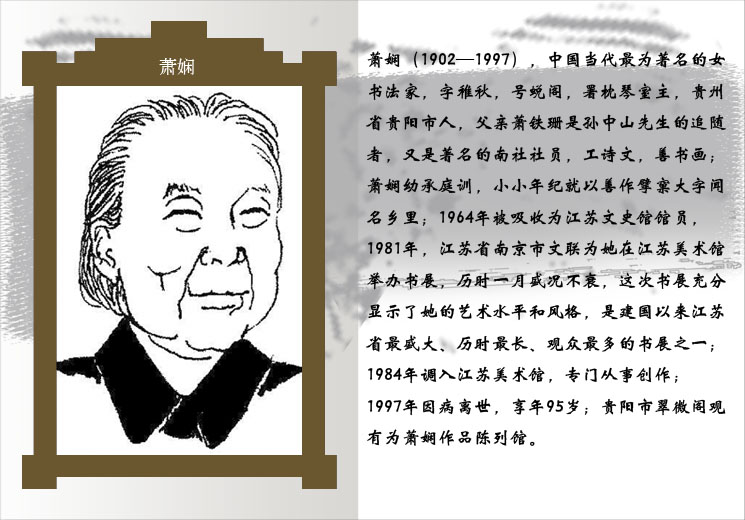 萧娴
萧娴（1902—1997），中国当代最为著名的女
书法家，字雅秋，号蜕阁，署枕琴室主，贵州
省贵阳市人，父亲萧铁珊是孙中山先生的追随
者，又是著名的南社社员，工诗文，善书画；
萧娴幼承庭训，小小年纪就以善作擘窠大字闻
名乡里；1964年被吸收为江苏文史馆馆员，
1981年，江苏省南京市文联为她在江苏美术馆
举办书展，历时一月盛况不衰，这次书展充分
显示了她的艺术水平和风格，是建国以来江苏
省最盛大、历时最长、观众最多的书展之一；
1984年调入江苏美术馆，专门从事创作；
1997年因病离世，享年95岁；贵阳市翠微阁现
有为萧娴作品陈列馆。